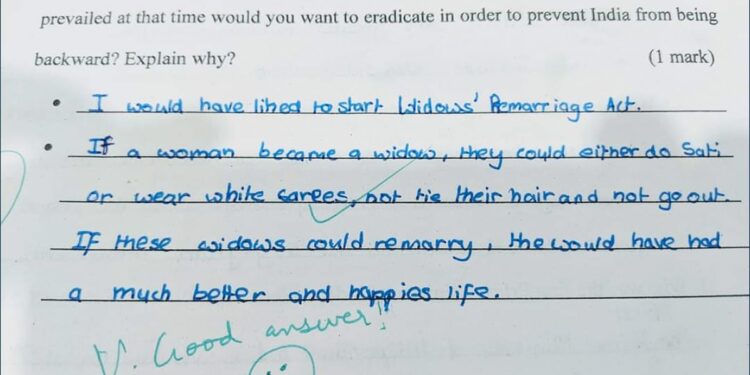 prevailed at that time would you want to eradicate in order to prevent India from being
backward? Explain why? (1 mark)
• I would have liked to start Widows' Remarriage Act.
• If a woman became a widow, they could either do Sati
or wear white sarees, not tie their hair and not go out.
If these widows could remarry, the would have had
a much better and happies life.
V. Good answer!